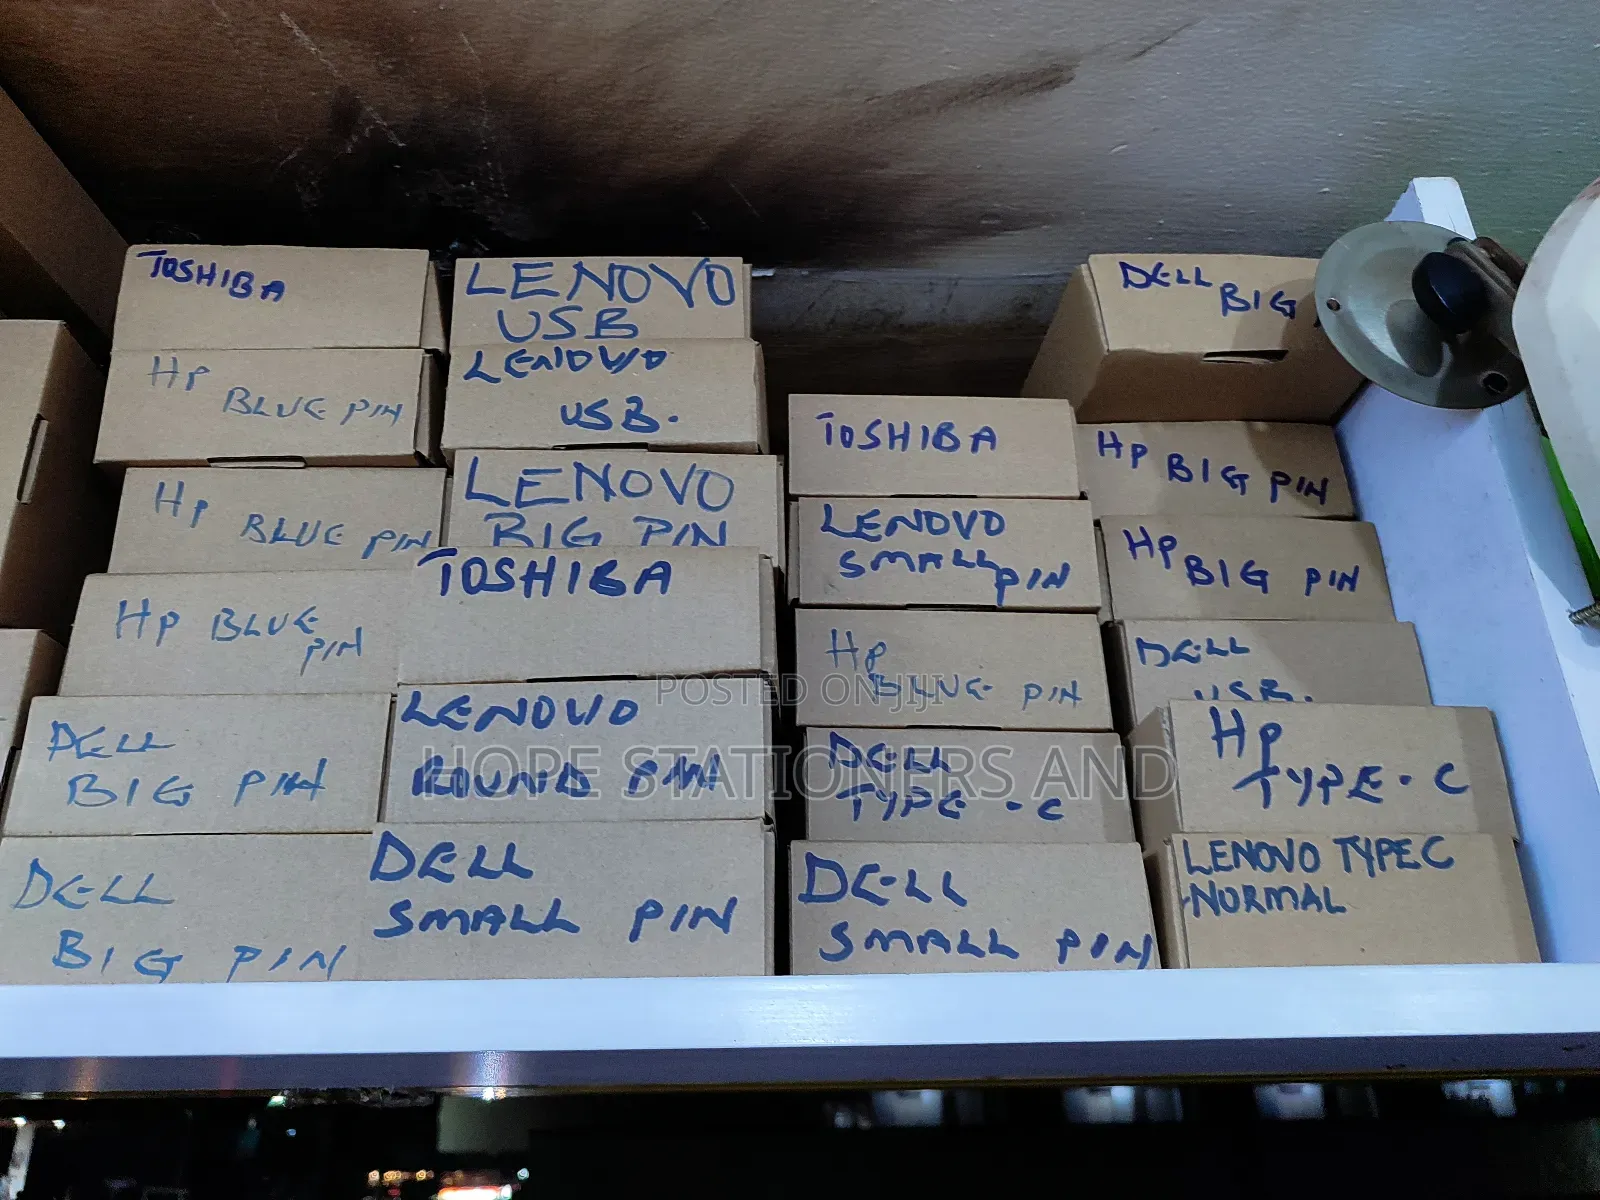 TOSHIBA
HP
BLUE PIN
HP
BLUE PIN
HP BLUE
PIN
DELL
BIG PIN
DELL
BIG PIN
LENOVO
USB
LENOVO
USB.
LENOVO
BIG PIN
TOSHIBA
LENOVO
ROUND PIN
DELL
SMALL PIN
TOSHIBA
LENOVO
SMALL PIN
HP
BLUE PIN
DELL
TYPE-C
DELL
SMALL PIN
DELL
BIG
HP BIG PIN
HP BIG PIN
DELL
USB.
HP
TYPE-C
LENOVO TYPE C
-NORMAL
POSTED ON JIJI
HOPE STATIONERS AND